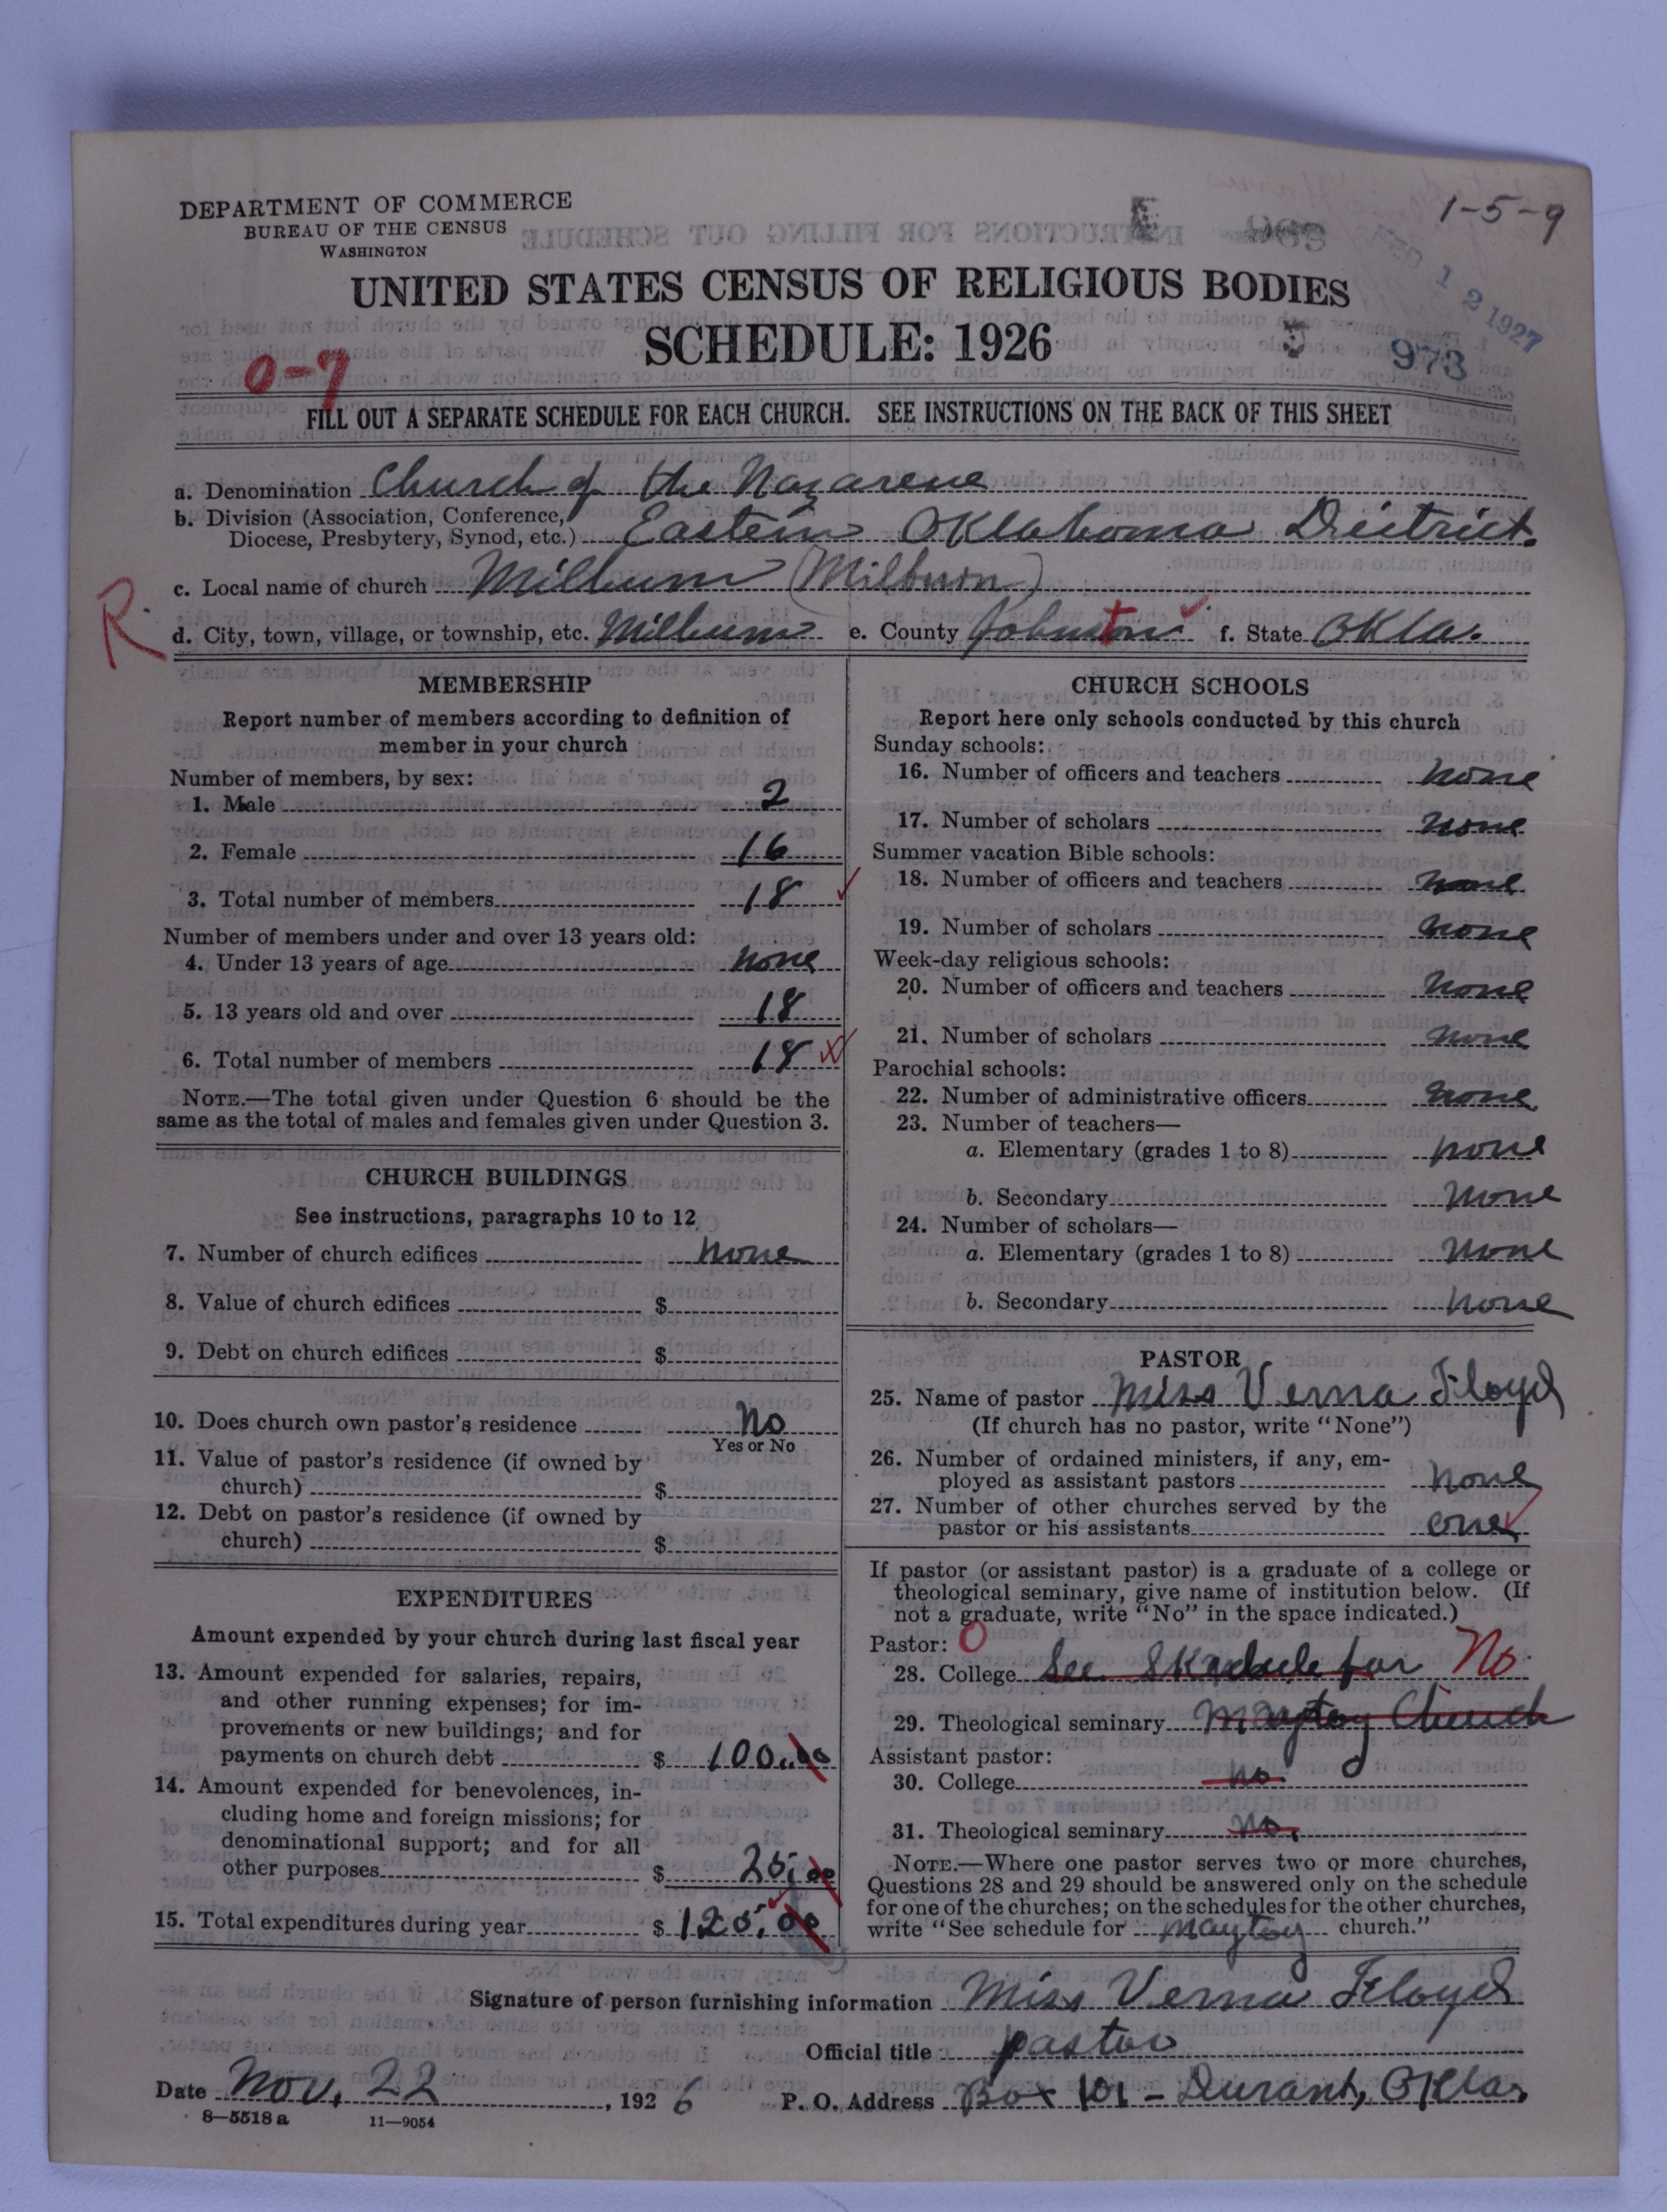 DEPARTMENT OF COMMERCE
BUREAU OF THE CENSUS
WASHINGTON
1-5-9
UNITED STATES CENSUS OF RELIGIOUS BODIES
SCHEDULE: 1926
12 1927
973
0-7
FILL OUT A SEPARATE SCHEDULE FOR EACH CHURCH. SEE INSTRUCTIONS ON THE BACK OF THIS SHEET
a. Denomination Church of the Nazarene
b. Division (Association, Conference,
Diocese, Presbytery, Synod, etc.) Eastern Oklahoma District.
c. Local name of church Milburn (Milburn)
R
d. City, town, village, or township, etc. Milburn e. County Johnston f. State Okla.
MEMBERSHIP
Report number of members according to definition of
member in your church
Number of members, by sex:
1. Male 2
2. Female 16
3. Total number of members 18
Number of members under and over 13 years old:
4. Under 13 years of age none
5. 13 years old and over 18
6. Total number of members 18
NOTE.—The total given under Question 6 should be the
same as the total of males and females given under Question 3.
CHURCH BUILDINGS
See instructions, paragraphs 10 to 12
7. Number of church edifices none
8. Value of church edifices $
9. Debt on church edifices $
10. Does church own pastor's residence No
Yes or No
11. Value of pastor's residence (if owned by
church) $
12. Debt on pastor's residence (if owned by
church) $
EXPENDITURES
Amount expended by your church during last fiscal year
13. Amount expended for salaries, repairs,
and other running expenses; for im-
provements or new buildings; and for
payments on church debt $ 100.00
14. Amount expended for benevolences, in-
cluding home and foreign missions; for
denominational support; and for all
other purposes $ 25.00
15. Total expenditures during year $ 125.00
CHURCH SCHOOLS
Report here only schools conducted by this church
Sunday schools:
16. Number of officers and teachers none
17. Number of scholars none
Summer vacation Bible schools:
18. Number of officers and teachers none
19. Number of scholars none
Week-day religious schools:
20. Number of officers and teachers none
21. Number of scholars none
Parochial schools:
22. Number of administrative officers none
23. Number of teachers—
a. Elementary (grades 1 to 8) none
b. Secondary none
24. Number of scholars—
a. Elementary (grades 1 to 8) none
b. Secondary none
PASTOR
25. Name of pastor Miss Verna Floyd
(If church has no pastor, write "None")
26. Number of ordained ministers, if any, em-
ployed as assistant pastors none
27. Number of other churches served by the
pastor or his assistants one
If pastor (or assistant pastor) is a graduate of a college or
theological seminary, give name of institution below. (If
not a graduate, write "No" in the space indicated.)
Pastor: O
28. College See Skedule for No
29. Theological seminary Maytoy Church
Assistant pastor:
30. College no
31. Theological seminary no.
NOTE.—Where one pastor serves two or more churches,
Questions 28 and 29 should be answered only on the schedule
for one of the churches; on the schedules for the other churches,
write "See schedule for maytoy church."
Signature of person furnishing information Miss Verna Floyd
Official title pastor
Date Nov. 22, 1926 P. O. Address Box 101 - Durant, Okla,
8-5518 a 11-9054